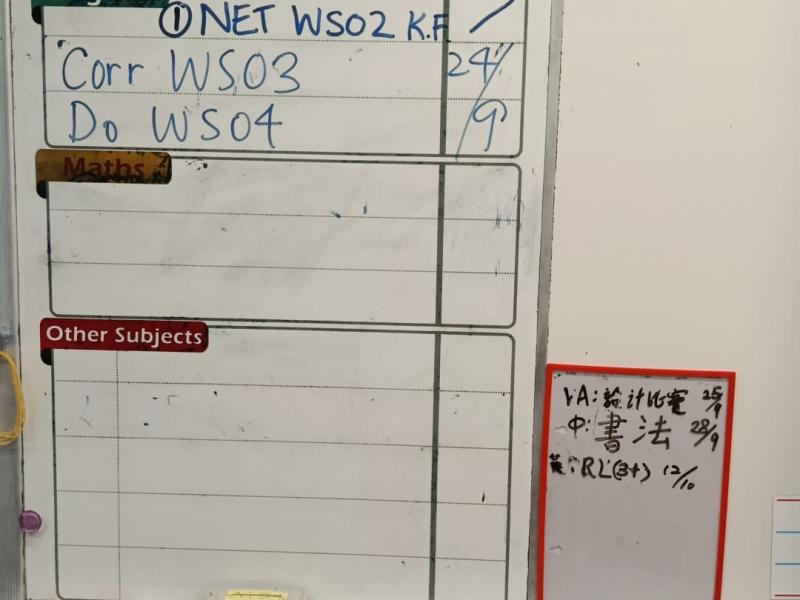 ① NET WS02 K.F /
Corr WS03 24/
Do WS04 /9
Maths
Other Subjects
VA: 計比賽 25/9
中: 書法 28/9
英: RL(3+) 12/10